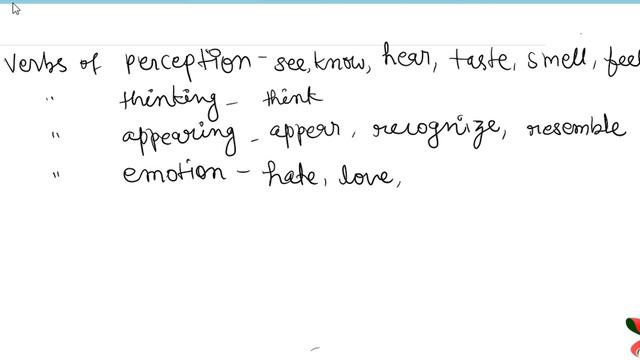 verbs of perception - see, know, hear, taste, smell, feel
" thinking - think
" appearing - appear, recognize, resemble
" emotion - hate, love,